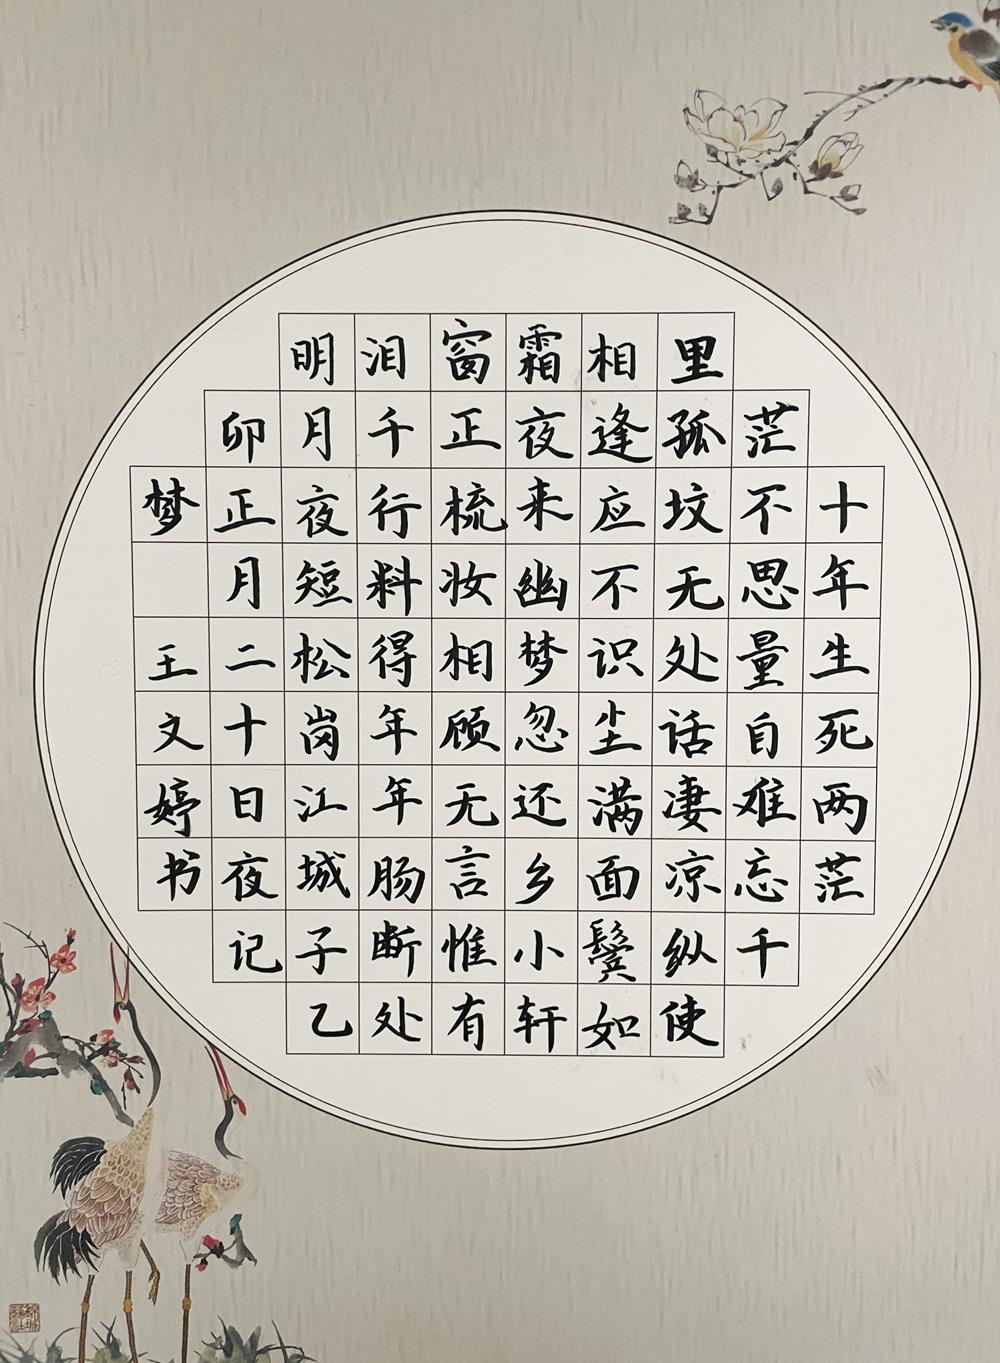 十年生死两茫
茫不思量自难忘千
里孤坟无处话凄凉纵使
相逢应不识尘满面鬓如
霜夜来幽梦忽还乡小轩
窗正梳妆相顾无言惟有
泪千行料得年年肠断处
明月夜短松岗江城子乙
卯正月二十日夜记
梦 王文婷书